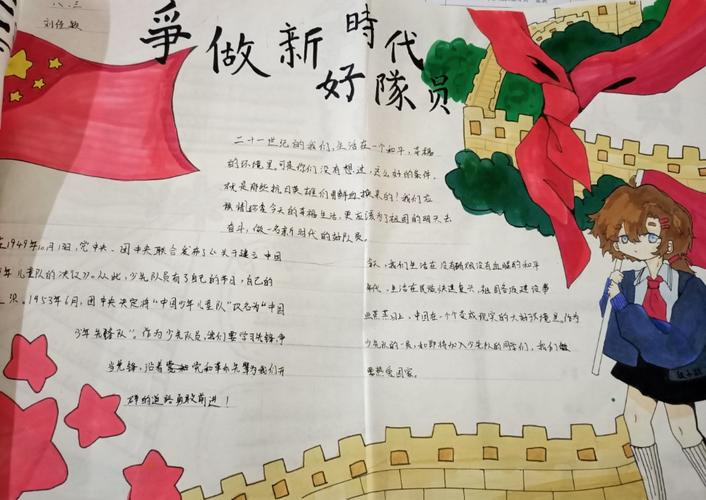 八.三
爭做新時代
好隊员
二十一世纪的我们,生活在一个和平,幸福
的环境里.可是你们没有想过,这么好的条件.
就是那些抗日英雄们用鲜血换来的!我们在
今天的幸福生活,更应该为了祖国的明天去
奋斗,做一名新时代的好队员.
1949年10月1日,党中央、团中央联合发布了《关于建立中国
年儿童队的决议》.从此,少先队员有了自己的节日,自己的
1953年6月,团中央决定将“中国少年儿童队”改名为“中国
少年先锋队”。作为少先队员,我们要学习先锋,争
当先锋,沿着 党和革命先辈为我们开
辟的道路勇敢前进!
我们生活在没有硝烟没有血腥的和平
年代.生活在民族快速复兴,祖国各项建设事
业蒸蒸日上,中国在一个个变成现实的大好环境里.作为
少先队的一员,和即将加入少先队的同学们,我们
要热爱国家.